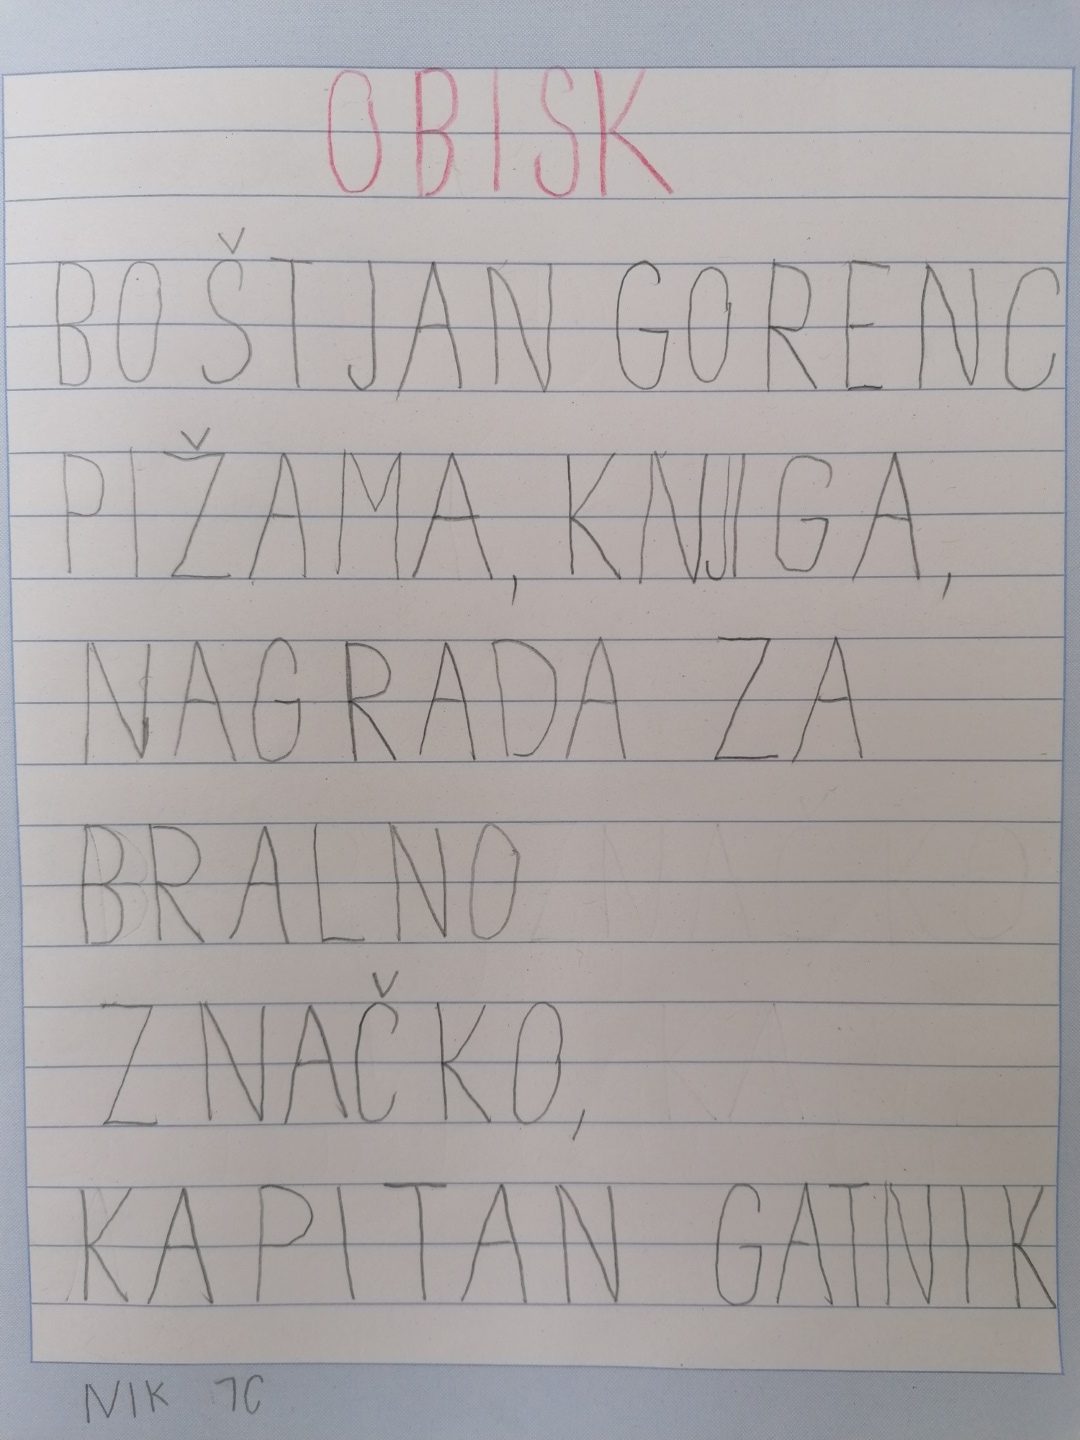 OBISK
BOŠTJAN GORENC
PIŽAMA, KNJIGA,
NAGRADA ZA
BRALNO
ZNAČKO,
KAPITAN GATNIK
NIK 1C